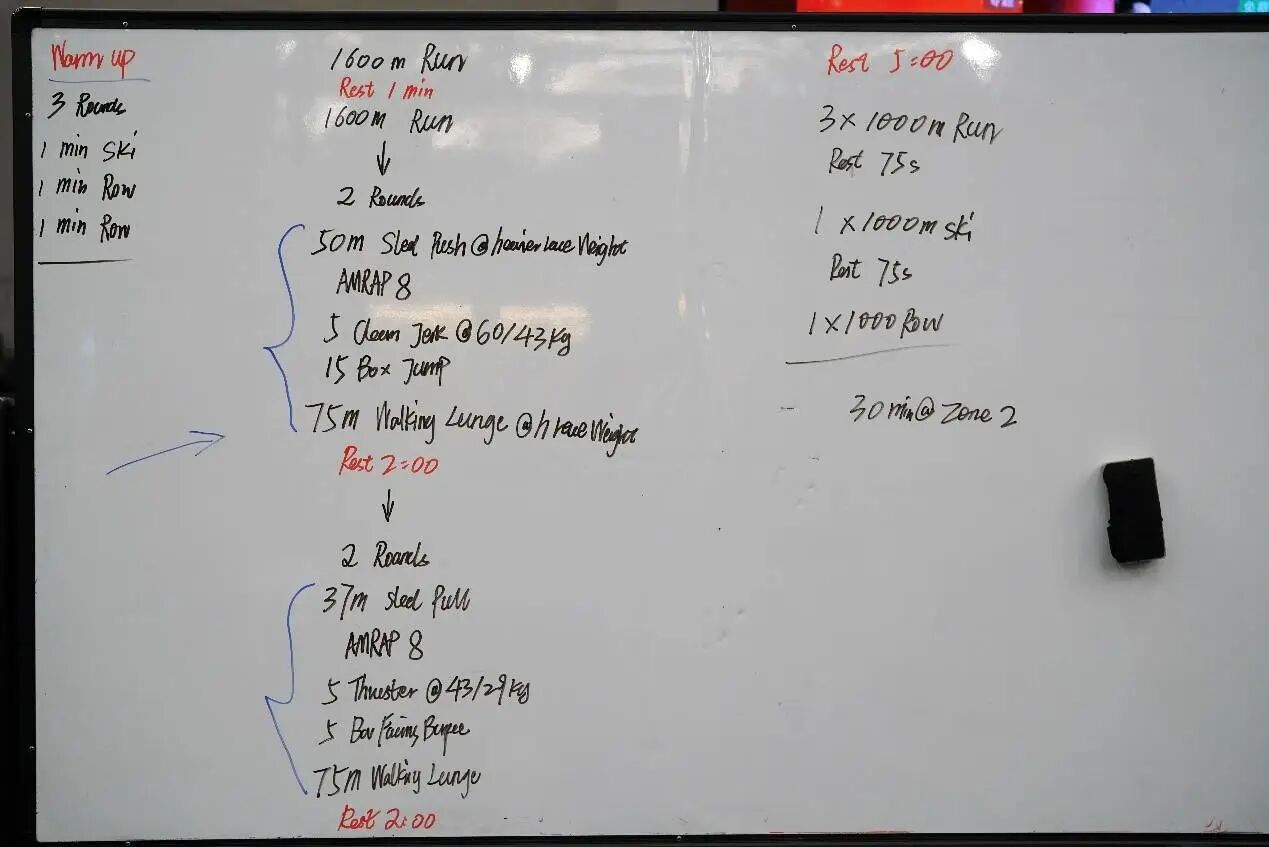 Warm up
3 Rounds
1 min Ski
1 min Row
1 min Row
1600m Run
Rest 1 min
1600m Run
2 Rounds
50m Sled Push @ heavier race Weight
AMRAP 8
5 Clean Jerk @ 60/43kg
15 Box Jump
75m Walking Lunge @ h race Weight
Rest 2:00
2 Rounds
37m Sled Pull
AMRAP 8
5 Thruster @ 43/29kg
5 Bar Facing Burpee
75m Walking Lunge
Rest 2:00
Rest 5:00
3 x 1000m Run
Rest 75s
1 x 1000m Ski
Rest 75s
1 x 1000 Row
- 30 min @ Zone 2